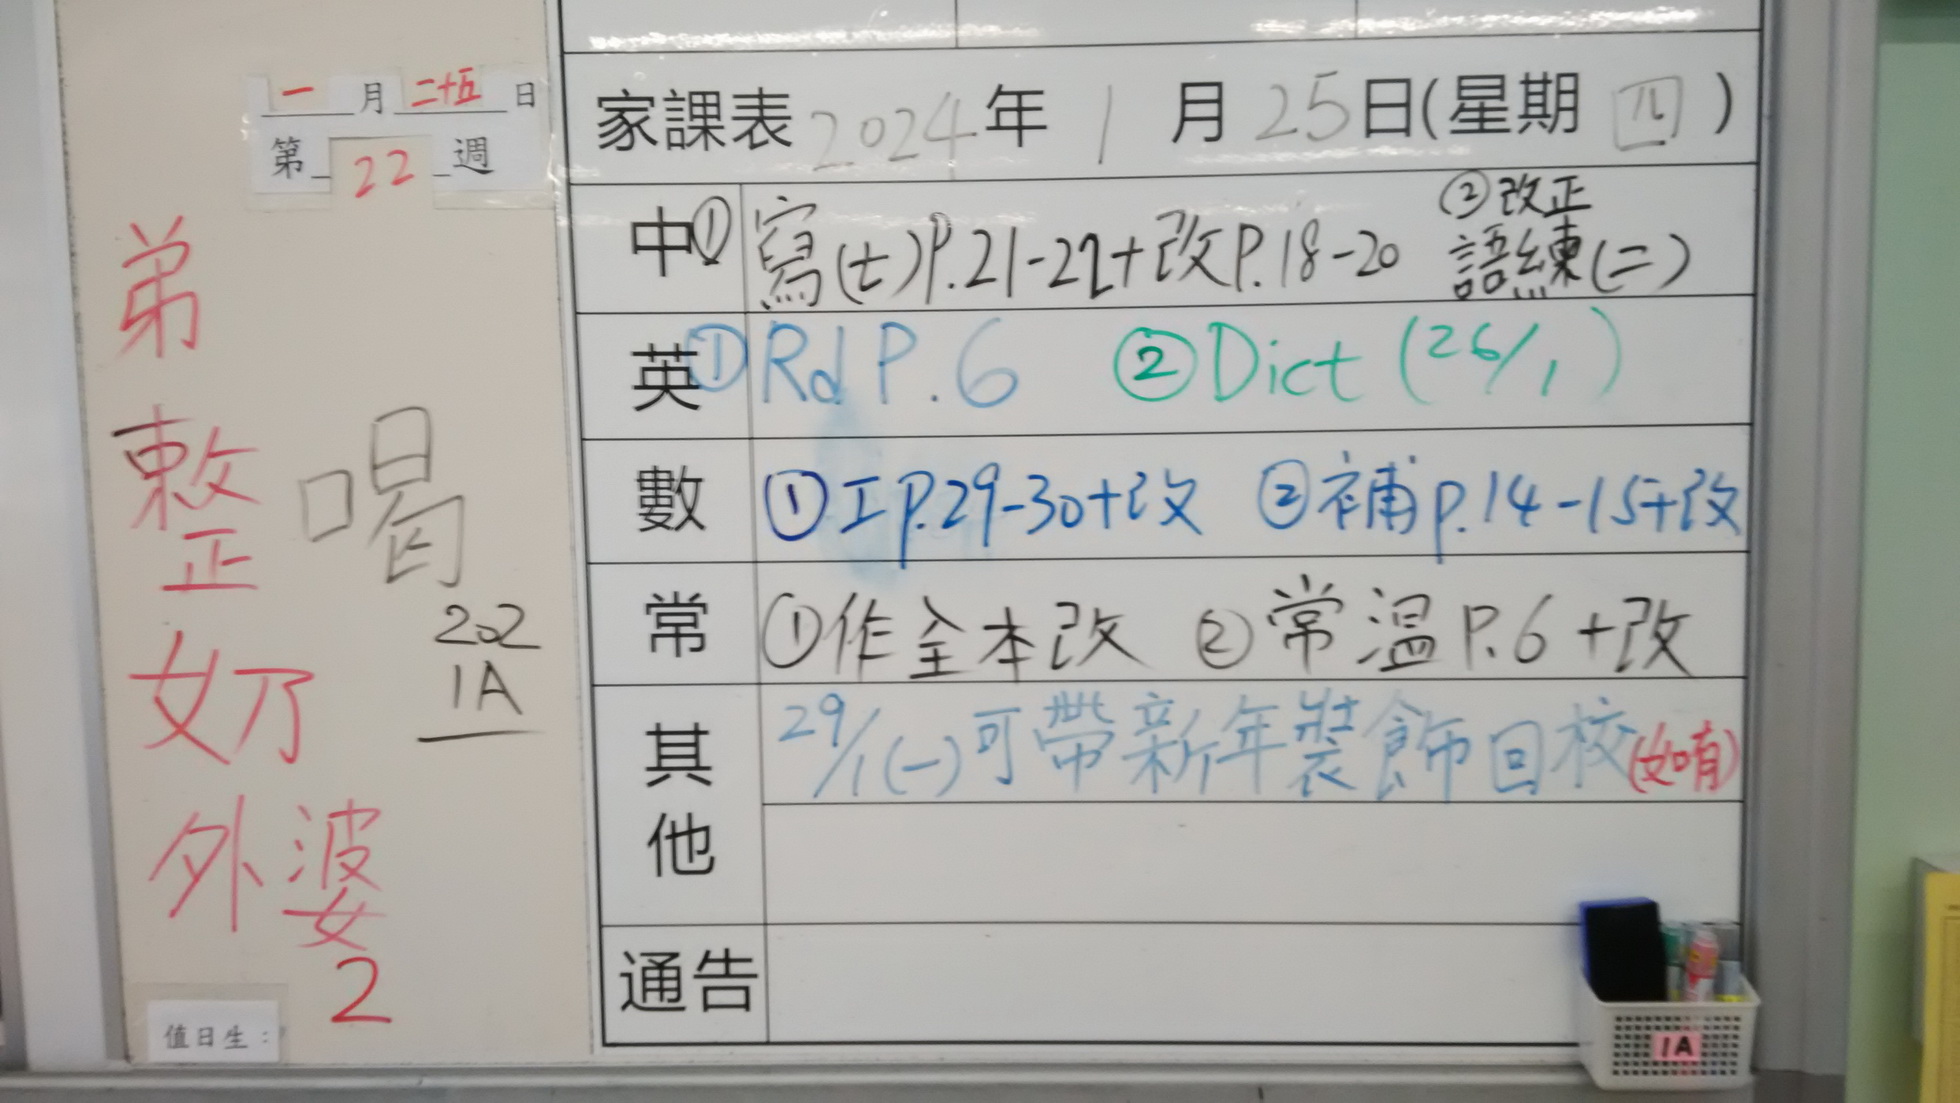 一月二十五日
第22週
弟
整
奶
外婆
2
喝
202
1A
值日生：
家課表2024年1月25日(星期四)
中①寫(七)P.21-22+改P.18-20 ②改正語練(二)
英①Rd P.6 ②Dict (26/1)
數①工P.29-30+改 ②補P.14-15+改
常①作全本改 ②常溫P.6+改
其他 29/1(一)可帶新年裝飾回校(如有)
通告
1A